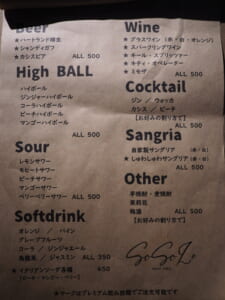 Beer
★ハートランド樽生
★シャンディガフ
★カシスビア
ALL 500
High BALL
ハイボール
ジンジャーハイボール
コーラハイボール
ピーチハイボール
マンゴーハイボール
ALL 500
Sour
レモンサワー
モヒートサワー
ピーチサワー
マンゴーサワー
ベリーベリーサワー
ALL 500
Softdrink
オレンジ / パイン
グレープフルーツ
コーラ / ジンジャエール
烏龍茶 / ジャスミン ALL 350
★イタリアンソーダ各種 450
Wine
★グラスワイン(赤・白・オレンジ)
★スパークリングワイン
★キール・スプリッツァー
★キティ・オペレーター
★ミモザ
ALL 500
Cocktail
ジン / ウォッカ
カシス / ピーチ
【お好みの割り方で】
ALL 500
Sangria
自家製サングリア (赤/白)
★しゅわしゅわサングリア (赤/白)
ALL 500
Other
芋焼酎・麦焼酎
茉莉花
梅酒
【お好みの割り方で】
ALL 500
★マークはプレミアム飲み放題でご注文可能です